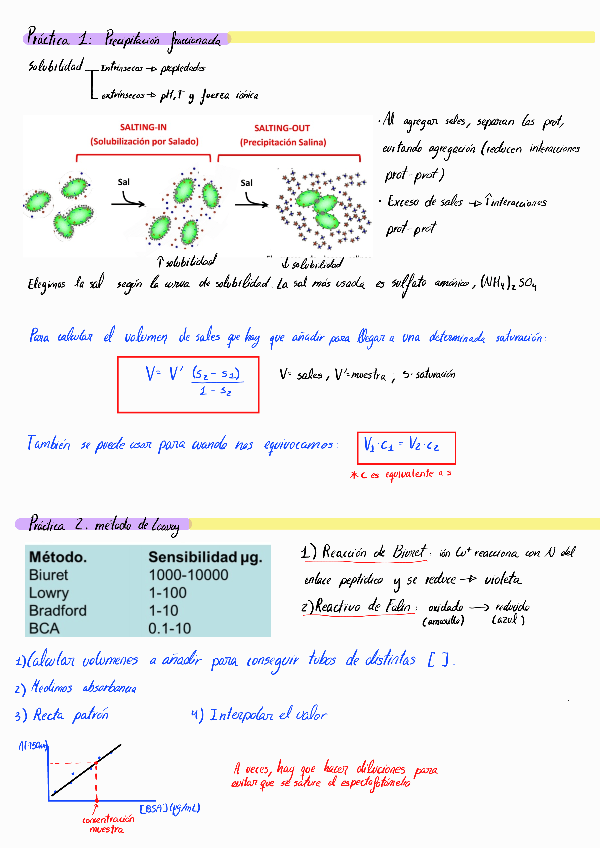 Práctica 1: Precipitación fraccionada
Solubilidad
intrínsecos → propiedades
extrínsecos → pH, T y fuerza iónica
SALTING-IN
(Solubilización por Salado)
SALTING-OUT
(Precipitación Salina)
Sal
Sal
↑ solubilidad
↓ solubilidad
· Al agregar sales, separan las prot,
evitando agregación (reducen interacciones
prot-prot)
· Exceso de sales → ↑interacciones
prot-prot
Elegimos la sal según la curva de solubilidad. La sal más usada es sulfato amónico, (NH4)2 SO4
Para calcular el volumen de sales que hay que añadir para llegar a una determinada saturación:
V = V' (s2 - s1) / 1 - s2
V= sales, V'=muestra, S= saturación
También se puede usar para cuando nos equivocamos:
V1·c1 = V2·c2
* c es equivalente a s
Práctica 2. método de Lowry
Método. Sensibilidad µg.
Biuret 1000-10000
Lowry 1-100
Bradford 1-10
BCA 0.1-10
1) Reacción de Biuret: ión Cu+ reacciona con N del
enlace peptídico y se reduce → violeta
2) Reactivo de Folin: oxidado → reducido
(amarillo) (azul)
1) Calcular volumenes a añadir para conseguir tubos de distintas [ ].
2) Medimos absorbancia
3) Recta patrón
4) Interpolar el valor
A(750nm)
[BSA] (µg/mL)
concentración
muestra
A veces, hay que hacer diluciones para
evitar que se sature el espectofotómetro